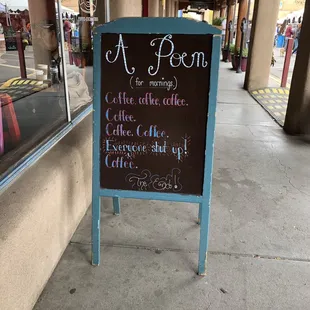 A Poem
(for mornings)
Coffee, coffee, coffee.
Coffee.
Coffee. Coffee.
Everyone shut up!
Coffee.
The End!